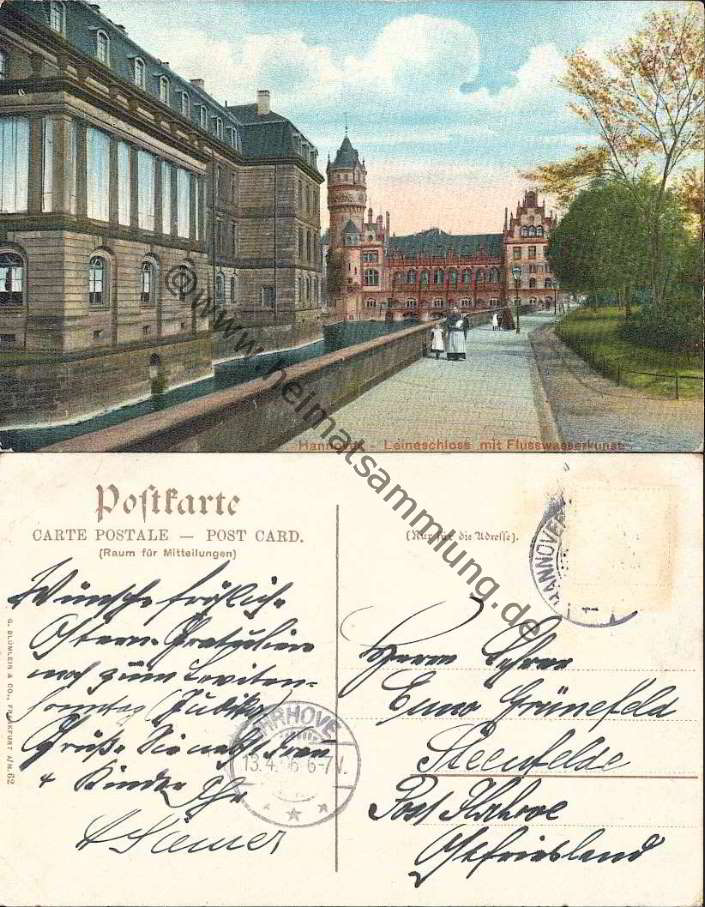 Hannover - Leineschloss mit Flusswasserkunst.
@www.heimatsammlung.de
Postkarte
CARTE POSTALE — POST CARD.
(Raum für Mitteilungen)
(Nur für die Adresse).
HANNOVER
G. BLÜMLEIN & CO., FRANKFURT A/M. 62
Wünsche fröhliche
Ostern. Gratuliere
noch zum
Sonntag (Judika)
Grüße Sie nebst Frau
+ Kinder Ihr
IHRHOVE
13.4. 6-7 V.
Herrn Lehrer
Enno Grünefeld
Steenfelde
Post Ihrhove
Ostfriesland